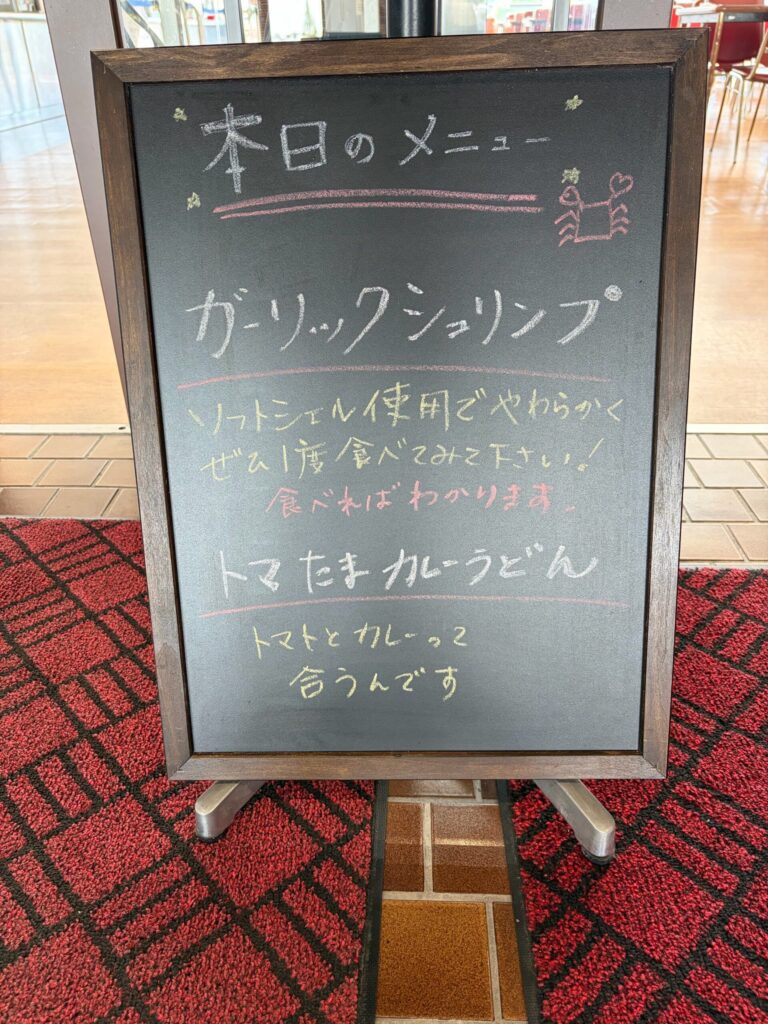 本日のメニュー
ガーリックシュリンプ
ソフトシェル使用でやわらかく
ぜひ1度食べてみて下さい!
食べればわかります。
トマたまカレーうどん
トマトとカレーって
合うんです